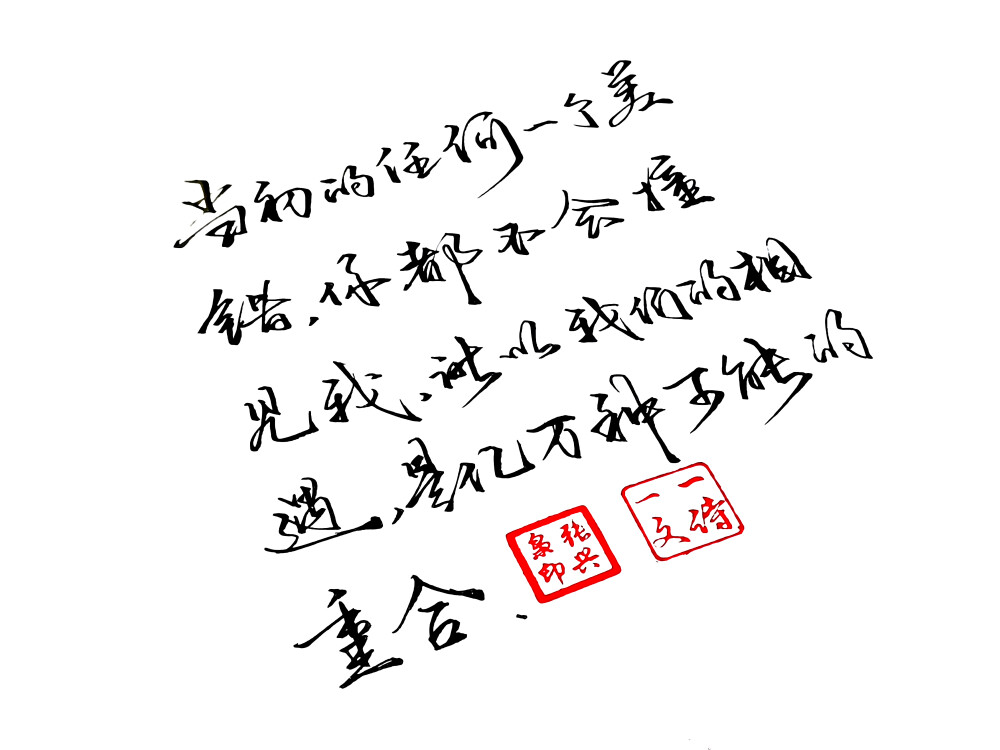 当初的任何一个差
错,你都不会撞
见我,所以我们的相
遇,是亿万种可能的
重合.
张兴
印
一诗
一文